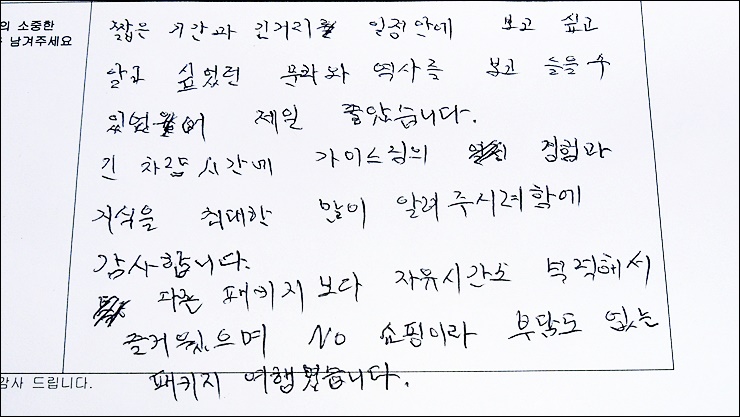 의 소중한
남겨주세요
짧은 시간과 긴거리를 일정안에 보고 싶고
알고 싶었던 문화와 역사를 보고 들을수
있었어 제일 좋았습니다.
긴 차량 시간에 가이드님의 경험과
지식을 최대한 많이 알려주시려함에
감사합니다.
다른 패키지보다 자유시간도 넉넉해서
즐거웠으며 No 쇼핑이라 부담도 없는
패키지 여행였습니다.
감사 드립니다.